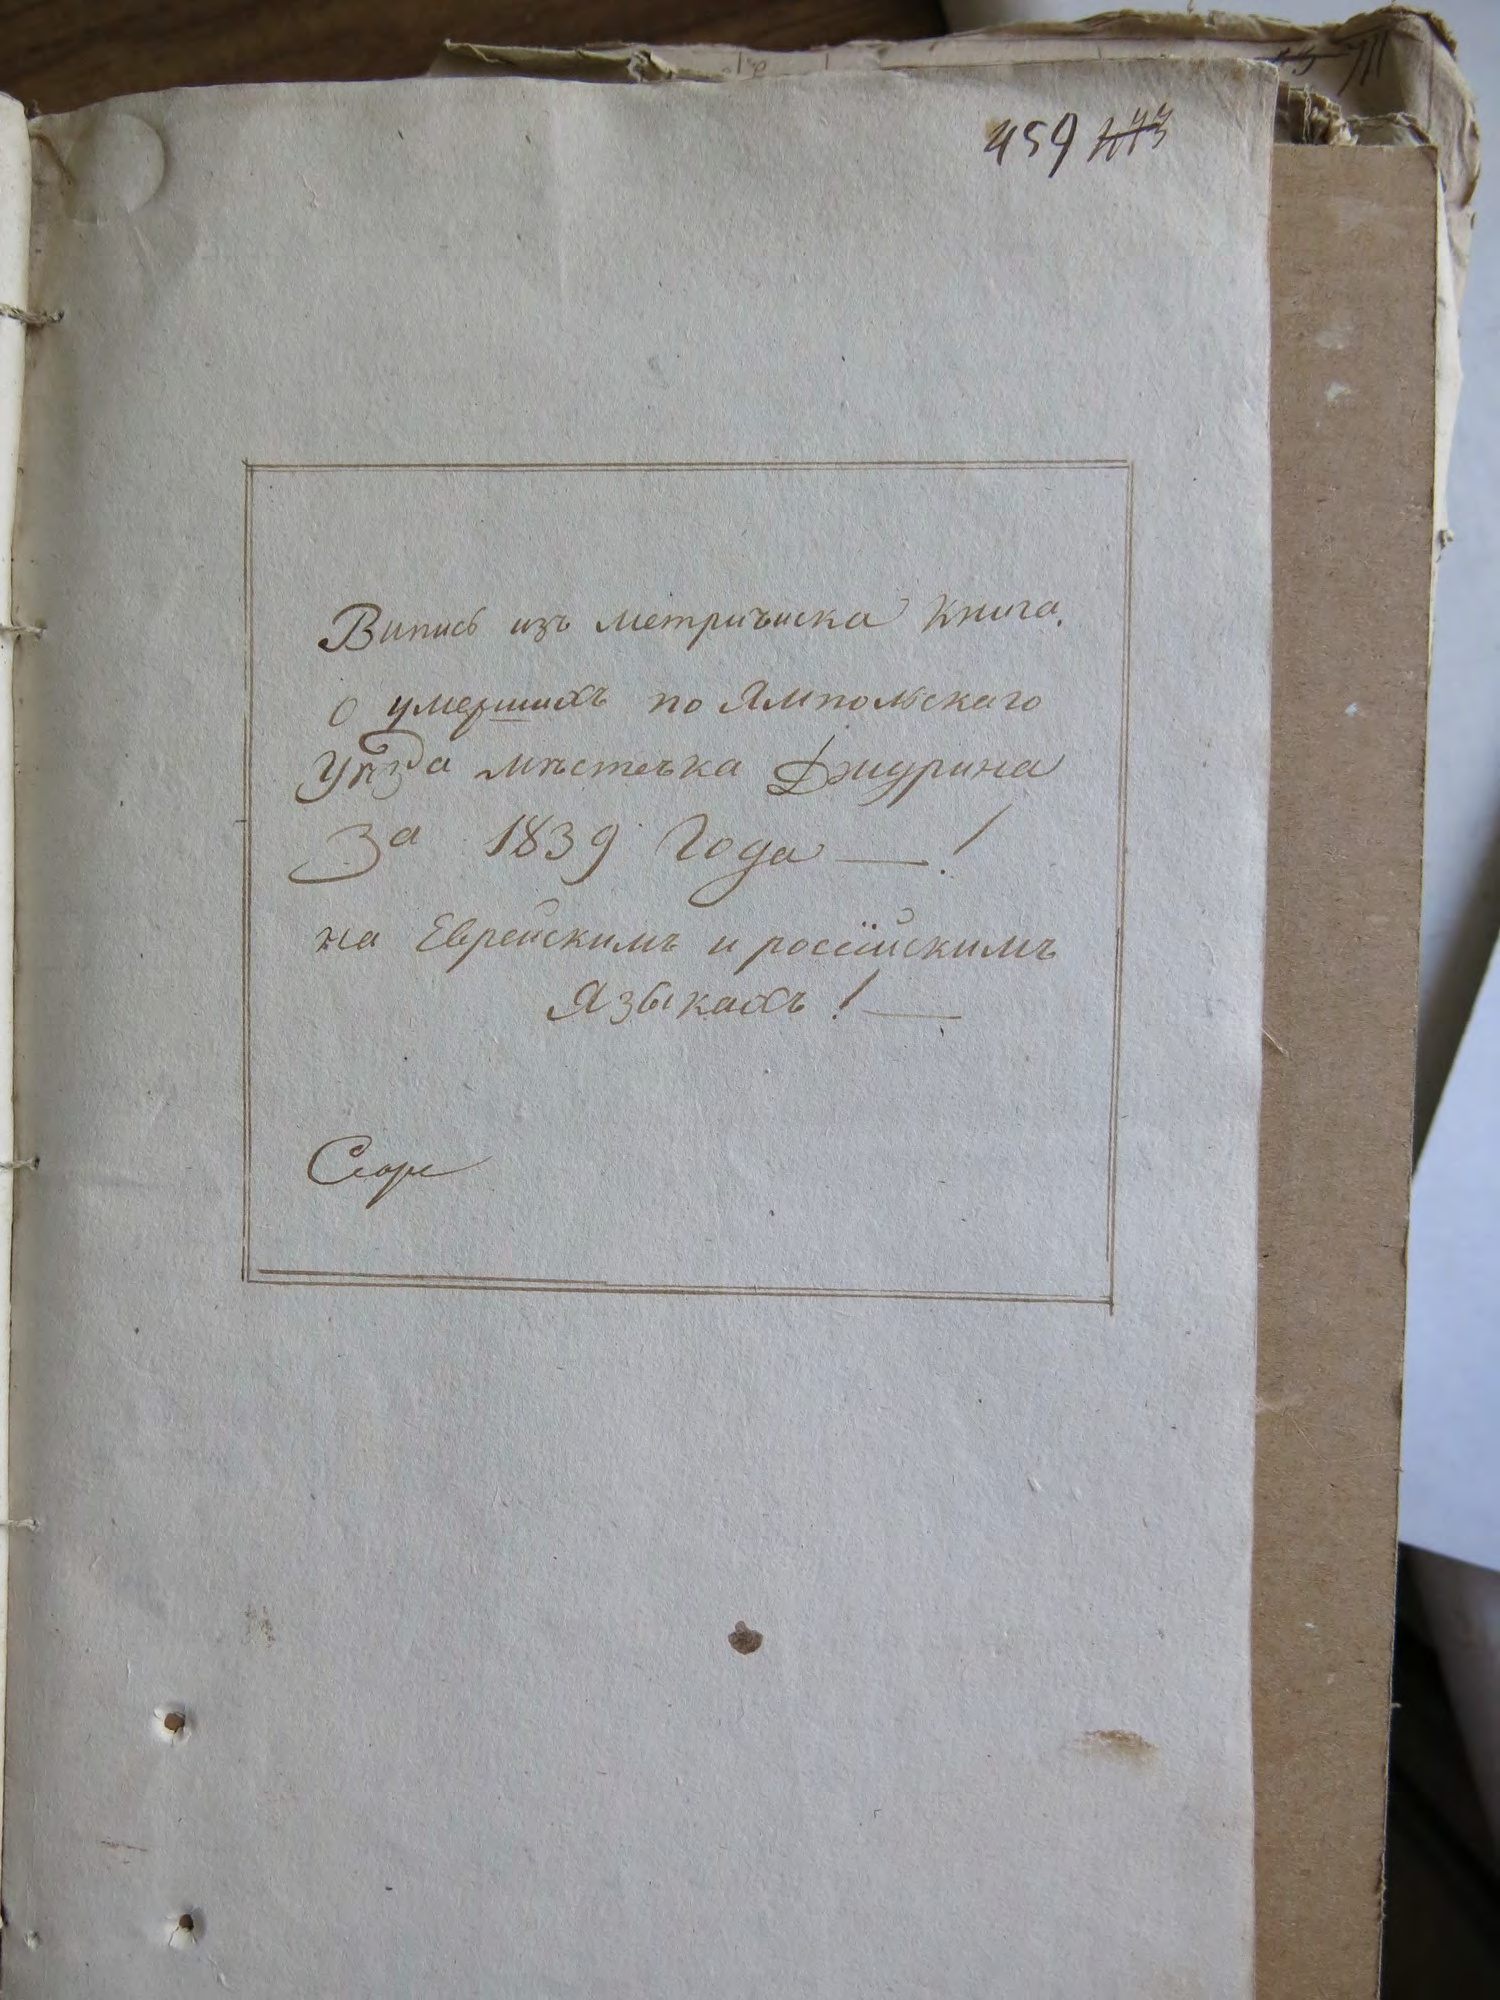 459 443
Випись изъ метричиска Книга.
о умершихъ по Ямпольскаго
Уѣзда мѣстечка Джурина
За 1839 Года — !
на Еврейскимъ и россiйскимъ
Языкахъ ! —